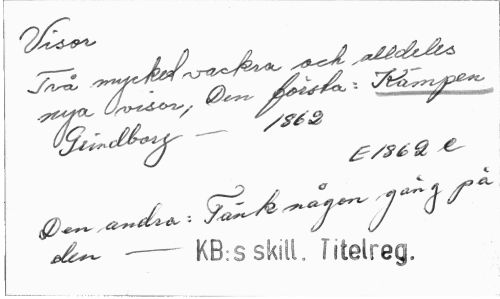 Visor
Två mycket vackra och alldeles
nya visor, Den första: Kämpen
Grindborg — 1862
E1862 e
Den andra: Tänk någon gång på
den — KB:s skill. Titelreg.